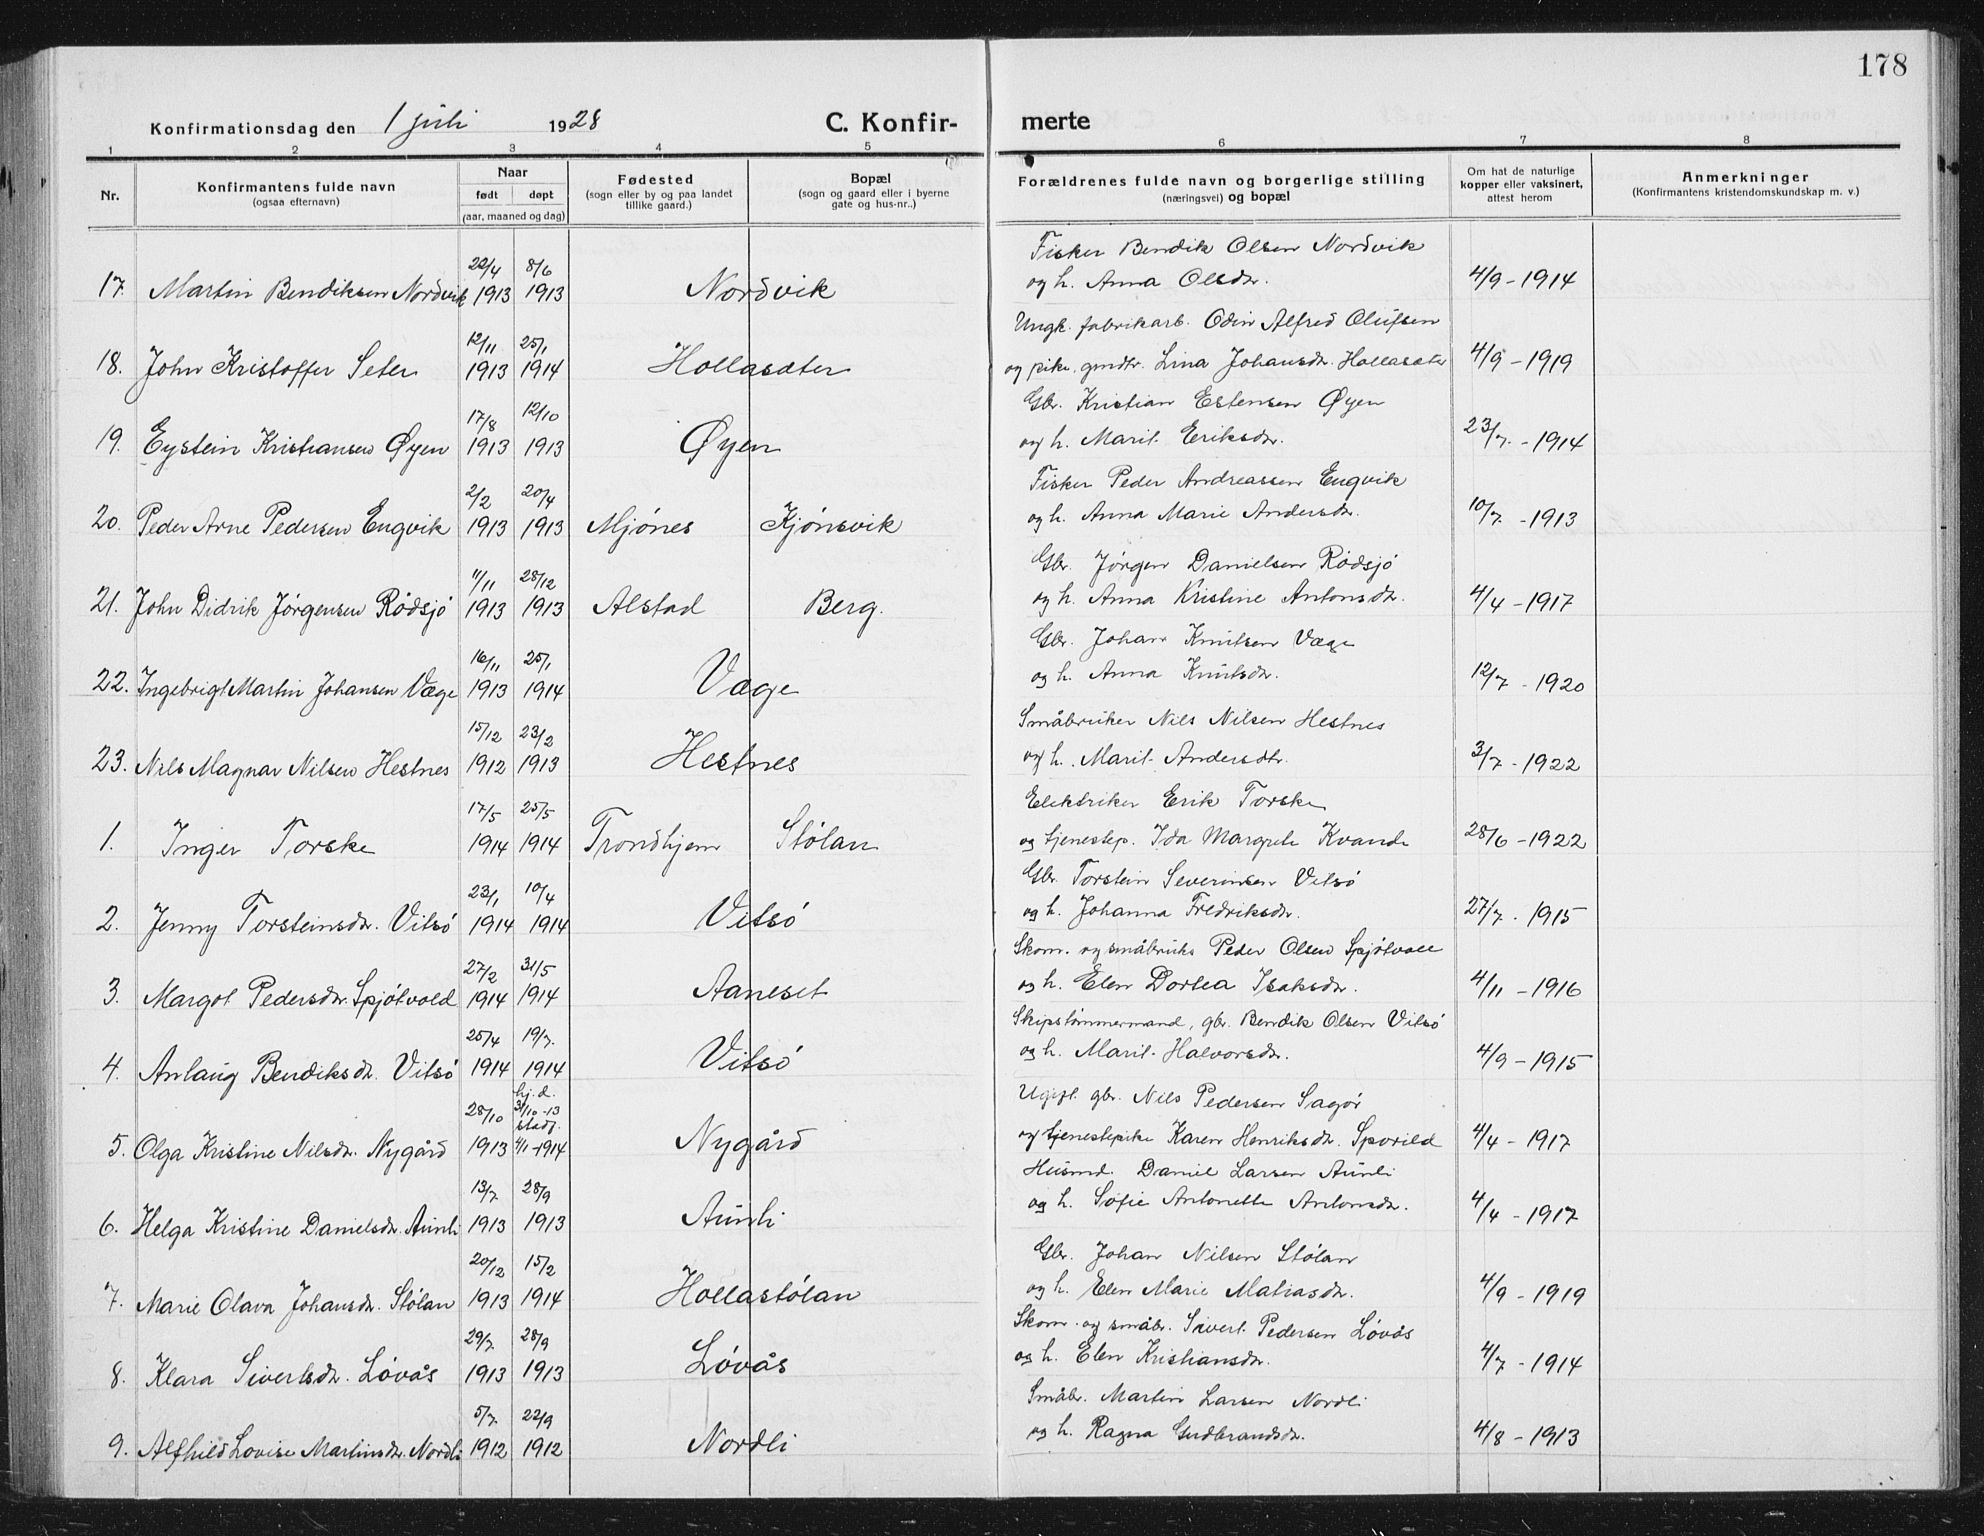 178
Konfirmationsdag den 1 juli 1928 C. Konfirmerte
1 2 3 4 5 6 7 8
Nr. Konfirmantens fulde navn (ogsaa efternavn) Naar født døpt (aar, maaned og dag) Fødested (sogn eller by og paa landet tillike gaard.) Bopæl (sogn og gaard eller i byerne gate og hus-nr..) Forældrenes fulde navn og borgerlige stilling (næringsvei) og bopæl Om hat de naturlige kopper eller vaksinert, attest herom Anmerkninger (Konfirmantens kristendomskundskap m. v.)
22/4 8/6 Fisker Bendik Olsen Nordvik
17. Martin Bendiksen Nordvik 1913 1913 Nordvik og h. Anna Olsdr. 4/9 - 1914
12/11 25/1 Ungk. fabrikarb. Odin Alfred Olufsen
18. John Kristoffer Seter 1913 1914 Hollasæter og pike, gmdtr. Lina Johansdr. Hollasæter 4/9 - 1919
17/8 12/10 Gbr. Kristian Estensen Øyen
19. Eystein Kristiansen Øyen 1913 1913 Øyen og h. Marit Eriksdr. 23/7 - 1914
2/2 20/4 Fisker Peder Andreassen Engvik
20. Peder Arne Pedersen Engvik 1913 1913 Mjónes Kjónsvik og h. Anna Marie Andersdr. 10/7 - 1913
11/11 28/12 Gbr. Jørgen Danielsen Ródsjó
21. John Didrik Jørgensen Ródsjó 1913 1913 Alstad Berg. og h. Anna Kristine Antonsdr. 4/4 - 1917
16/11 25/1 Gbr. Johan Knutsen Væge
22. Ingebrigt Martin Johansen Væge 1913 1914 Væge og h. Anna Knutsdr. 12/7 - 1920
15/12 23/2 Småbruker Nils Nilsen Hestnes
23. Nils Magnar Nilsen Hestnes 1912 1913 Hestnes og h. Marit Andersdtr. 3/7 - 1922
17/5 25/5 Elektriker Erik Torske
1. Inger Torske 1914 1914 Trondhjem Stólan og tjenestep. Ida Margrete Kvande 28/6 - 1922
23/1 10/4 Gbr. Torstein Severinsen Vitsó
2. Jenny Torsteinsdr. Vitsó 1914 1914 Vitsó og h. Johanna Fredriksdr. 27/7 - 1915
27/2 31/5 Skom. og småbruks Peder Olsen Spjótvoll
3. Margot Pedersdr. Spjótvold 1914 1914 Aaneset og h. Elen Dortea Isaksdr. 4/11 - 1916
25/4 19/7. Skipstómmermand, gbr. Bendik Olsen Vitsó
4. Anlaug Bendiksdr. Vitsó 1914 1914 Vitsó og h. Marit Halvorsdr. 4/9 - 1915
28/10 hj. d. 31/10-13 stadf. Ugift gbr. Nils Pedersen Sagór
5. Olga Kristine Nilsdr. Nygård 1913 4/1-1914 Nygård og tjenestepike Karen Henriksdr. Sporild 4/4 - 1917
13/7 28/9 Husmd. Daniel Larsen Aunli
6. Helga Kristine Danielsdr. Aunli 1913 1913 Aunli og h. Sofie Antonette Antonsdr. 4/4 - 1917
20/12 15/2 Gbr. Johan Nilsen Stólan
7. Marie Olava Johansdr. Stólan 1913 1914 Hollastólan og h. Elen Marie Matiasdr. 4/9 - 1919
29/7 28/9 Skom. og småbr. Sivert Pedersen Lóvås
8. Klara Sivertsdr. Lóvås 1913 1913 Lóvås og h. Elen Kristiansdr. 4/7 - 1914
5/7 22/9 Småbr. Martin Larsen Nordli
9. Alfhild Lovise Martinsdr. Nordli 1912 1912 Nordli og h. Ragna Gudbrandsdr. 4/8 - 1913